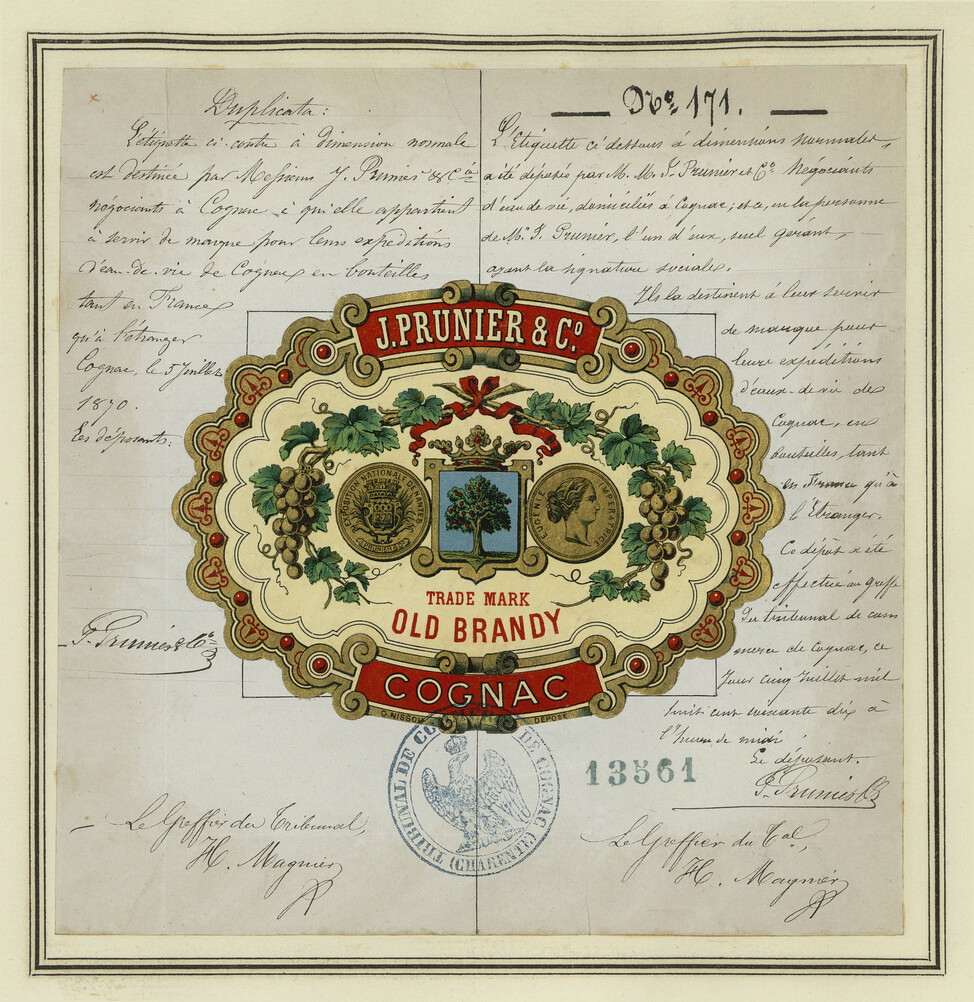 Duplicata :
L'étiquette ci-contre à dimension normale
est destinée par Messieurs J. Prunier & Cie
négociants à Cognac à qui elle appartient
à servir de marque pour leurs expéditions
d'eau-de-vie de Cognac en bouteilles
tant en France
qu'à l'étranger
Cognac, le 5 Juillet
1870.
Les déposants :
J. Prunier & Co
Le Greffier du Tribunal,
H. Magnier
— No. 171. —
L'Etiquette ci dessous à dimensions normales,
a été déposée par M. M. J. Prunier et Co Négociants
d'eau de vie, domiciliés à Cognac; et ce, en la personne
de Mr J. Prunier, l'un d'eux, seul gérant,
ayant la signature sociale.
Ils la destinent à leur servir
de marque pour
leurs expéditions
d'eaux-de-vie de
Cognac, en
bouteilles, tant
en France qu'à
l'Etranger.
Ce dépôt a été
effectué au greffe
du tribunal de com
merce de Cognac, ce
Jour cinq Juillet mil
huit cent soixante dix à
l'heure de midi
Le déposant.
J. Prunier & Co
Le Greffier du Tal,
H. Magnier
J. PRUNIER & Co.
EXPOSITION NATIONALE DE NANTES
EUGENIE IMPERATRICE
TRADE MARK
OLD BRANDY
COGNAC
G. NISSOU DÉPOSÉ
TRIBUNAL DE COMMERCE DE COGNAC
(CHARENTE)
13561